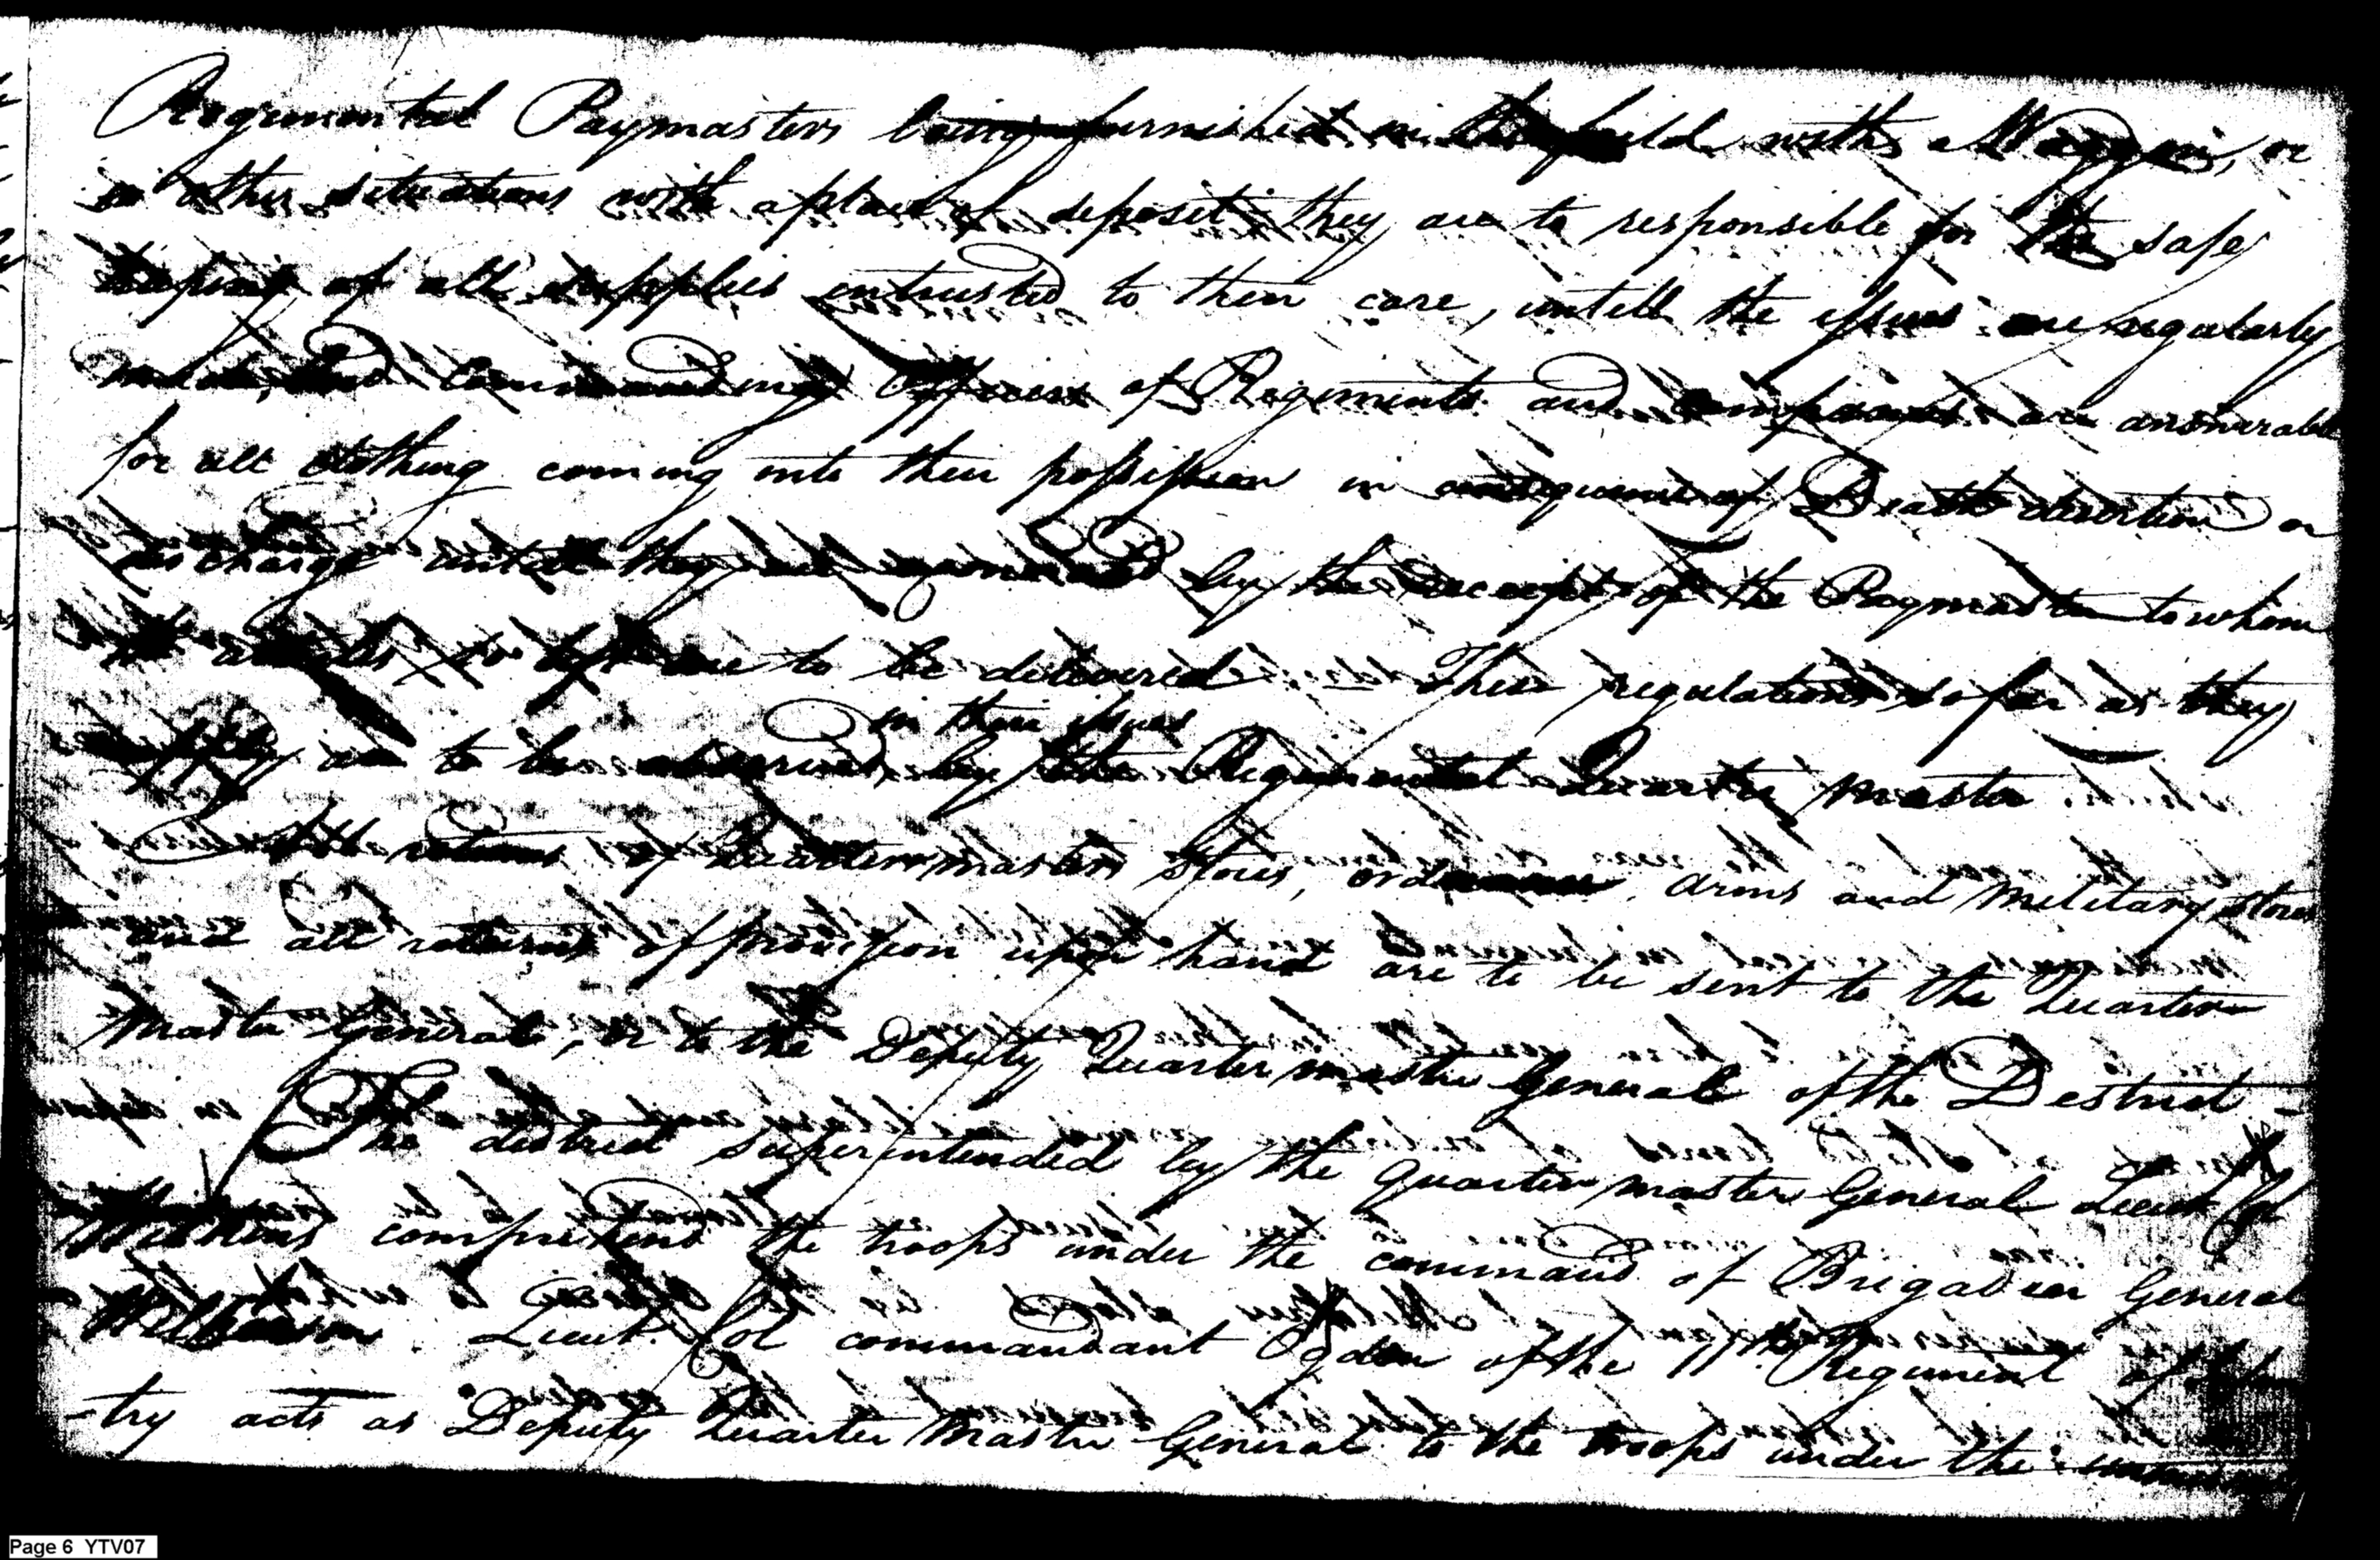 Regimental Paymasters being furnished in the field with a Waggon, or
in other situations with a place of deposit they are to responsible for the safe
keeping of all supplies intrusted to their care, untill the issues are regularly
made, and Commanding Officers of Regiments and companies are answerable
for all clothing coming into their possession in consequence of Death desertion or
discharge untill they are exonerated by the receipt of the Paymaster to whom
the articles so left are to be delivered These regulations so far as they
in their issues
apply are to be observed by the Regimental Quarter master
All returns of Quartermasters Stores, ordnance, arms and military stores
and all returns of provision upon hand are to be sent to the Quarter
master General, or to the Deputy Quarter master General of the District
The district superintended by the quarter master General Lieut Col
Wilkins comprehend the troops under the command of Brigadier General
Wilkinson. Lieut. Col commandant Ogden of the 11th Regiment of Infan
-try acts as Deputy Quarter Master General to the troops under the
Page 6 YTV07